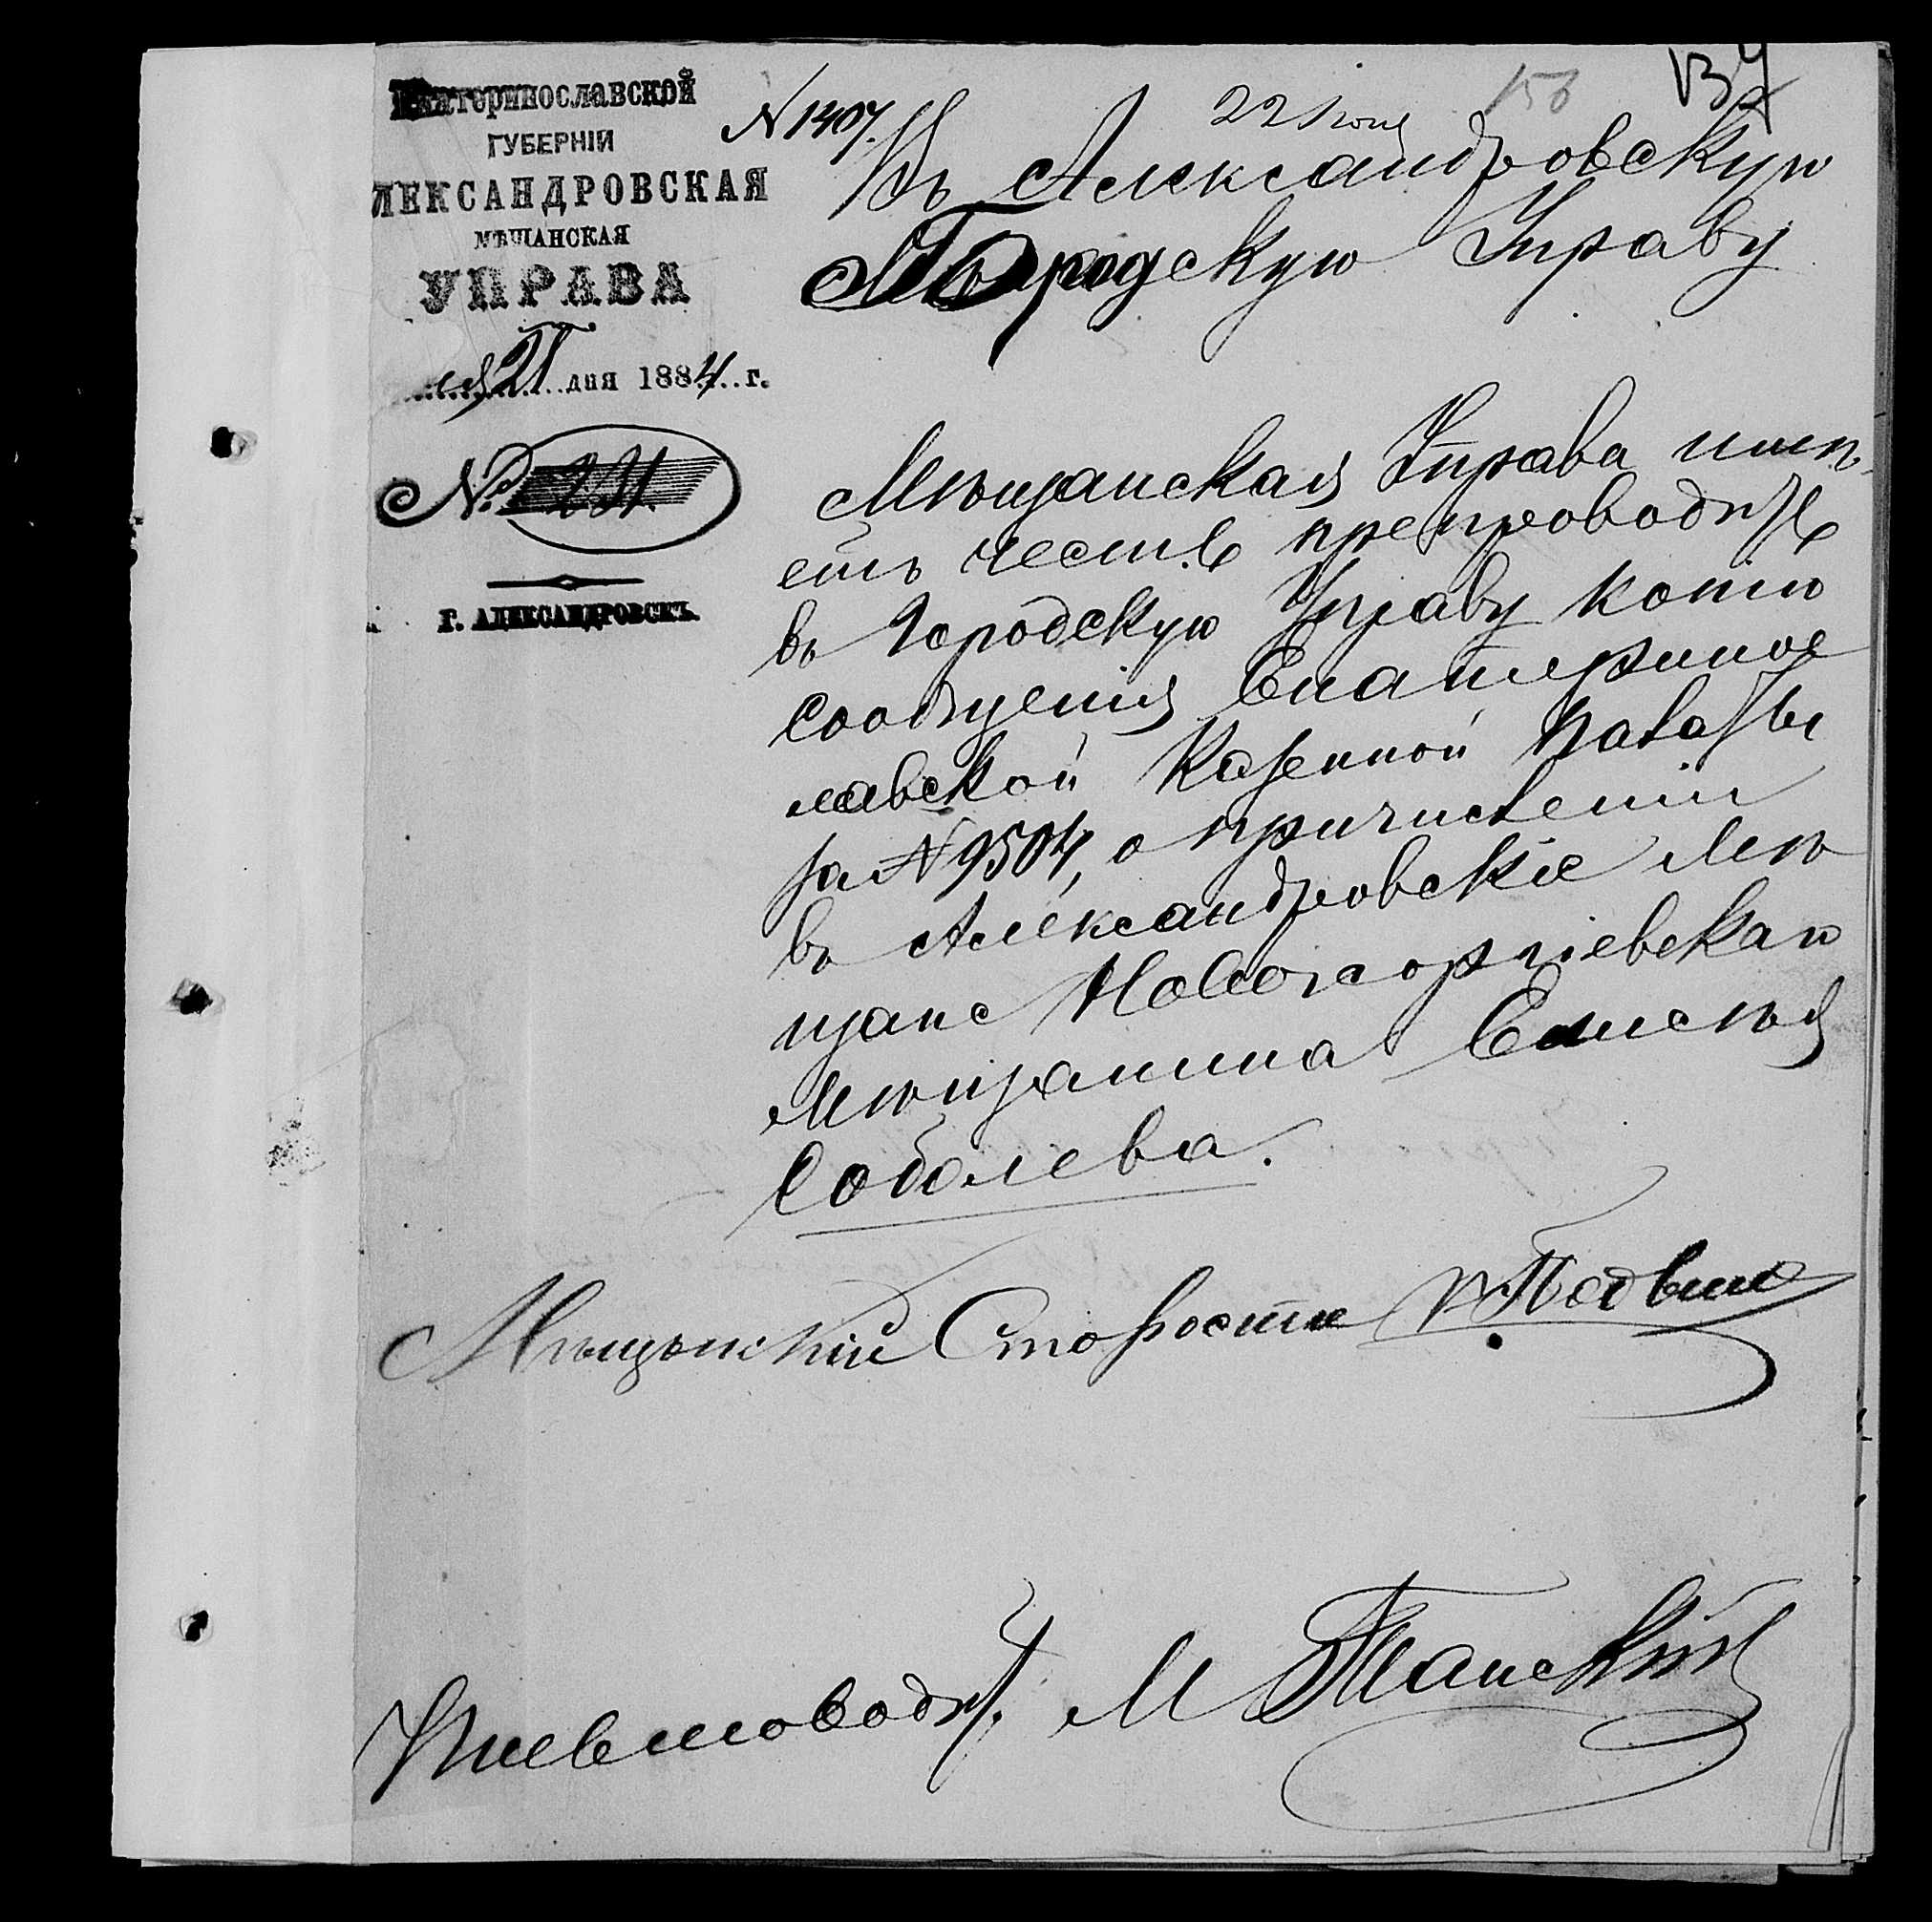 Екатеринославской
ГУБЕРНІИ
ЛЕКСАНДРОВСКАЯ
МѢЩАНСКАЯ
УПРАВА
21 дня 1884 г.
№ 231.
г. АЛЕКСАНДРОВСКЪ.
156
22 Іюня
N 1407.
Въ Александровскую
Городскую Управу
Мѣщанская Управа имѣ-
етъ честь препроводить
въ Городскую Управу копію
сообщенія Екатеринос
лавской Казенной Палаты
за N 9504, о причисленіи
въ Александровскіе мѣ
щане Новогеоргіевскаго
мѣщанина Елисѣя
Соболева.
Мѣщанскій Староста
Письмоводит. М